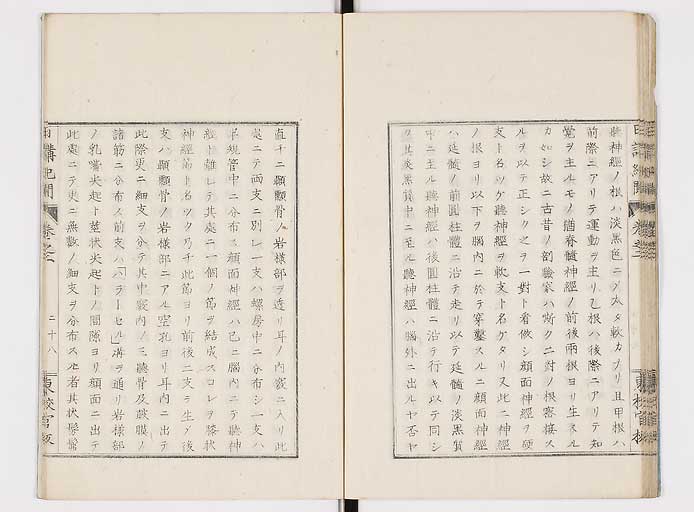 聴神経ノ根ハ淡黒色ニ乄太タ軟カナリ且甲根ハ
前際ニアリテ運動ヲ主リ乙根ハ後際ニアリテ知
覚ヲ主ルモノ猶脊髄神経ノ前後両根ヨリ生スル
カ如シ故ニ古昔ノ剖験家ハ斯ク二対ノ根密接ス
ルヲ以テ正シク之ヲ一対ト看做シ顔面神経ヲ硬
支ト名ツケ聴神経ヲ軟支ト名ケタリ又此二神経
ノ根ヨリ以下ヲ脳内ニ於テ穿鑿スルニ顔面神経
ハ延髄ノ前圓柱體ニ沿テ走リ以テ延髄ノ淡黒質
中ニ至ル聴神経ハ後圓柱體ニ沿テ行キ以テ同シ
ク其淡黒質中ニ至ル聴神経ハ脳外ニ出ルヤ否ヤ
日講紀聞 巻之二
東校官板
直チニ顳顬骨ノ岩様部ヲ透リ耳ノ内竅ニ入リ此
処ニテ両支ニ別レ一支ハ螺房中ニ分布シ一支ハ
半規管中ニ分布ス顔面神経ハ已ニ脳内ニテ聴神
経ト離レテ其処ニ一個ノ節ヲ結成スコレヲ膝状
神経節ト名ツク乃チ此節ヨリ前後二支ヲ生ス後
支ハ顳顬骨ノ岩様部ニアル空孔ヨリ耳内ニ出テ
此際更ニ細支ヲ分テ其中竅内ノ三聴骨及鼓膜ノ
諸筋ニ分布ス前支ハ「ハラートセル」溝ヲ通リ岩様部
ノ乳嘴尖起ト莖状尖起トノ間隙ヨリ顔面ニ出テ
此処ニテ更ニ無数ノ細支ヲ分布ス此者其状
日講紀聞 巻之二 二十八 東校官板